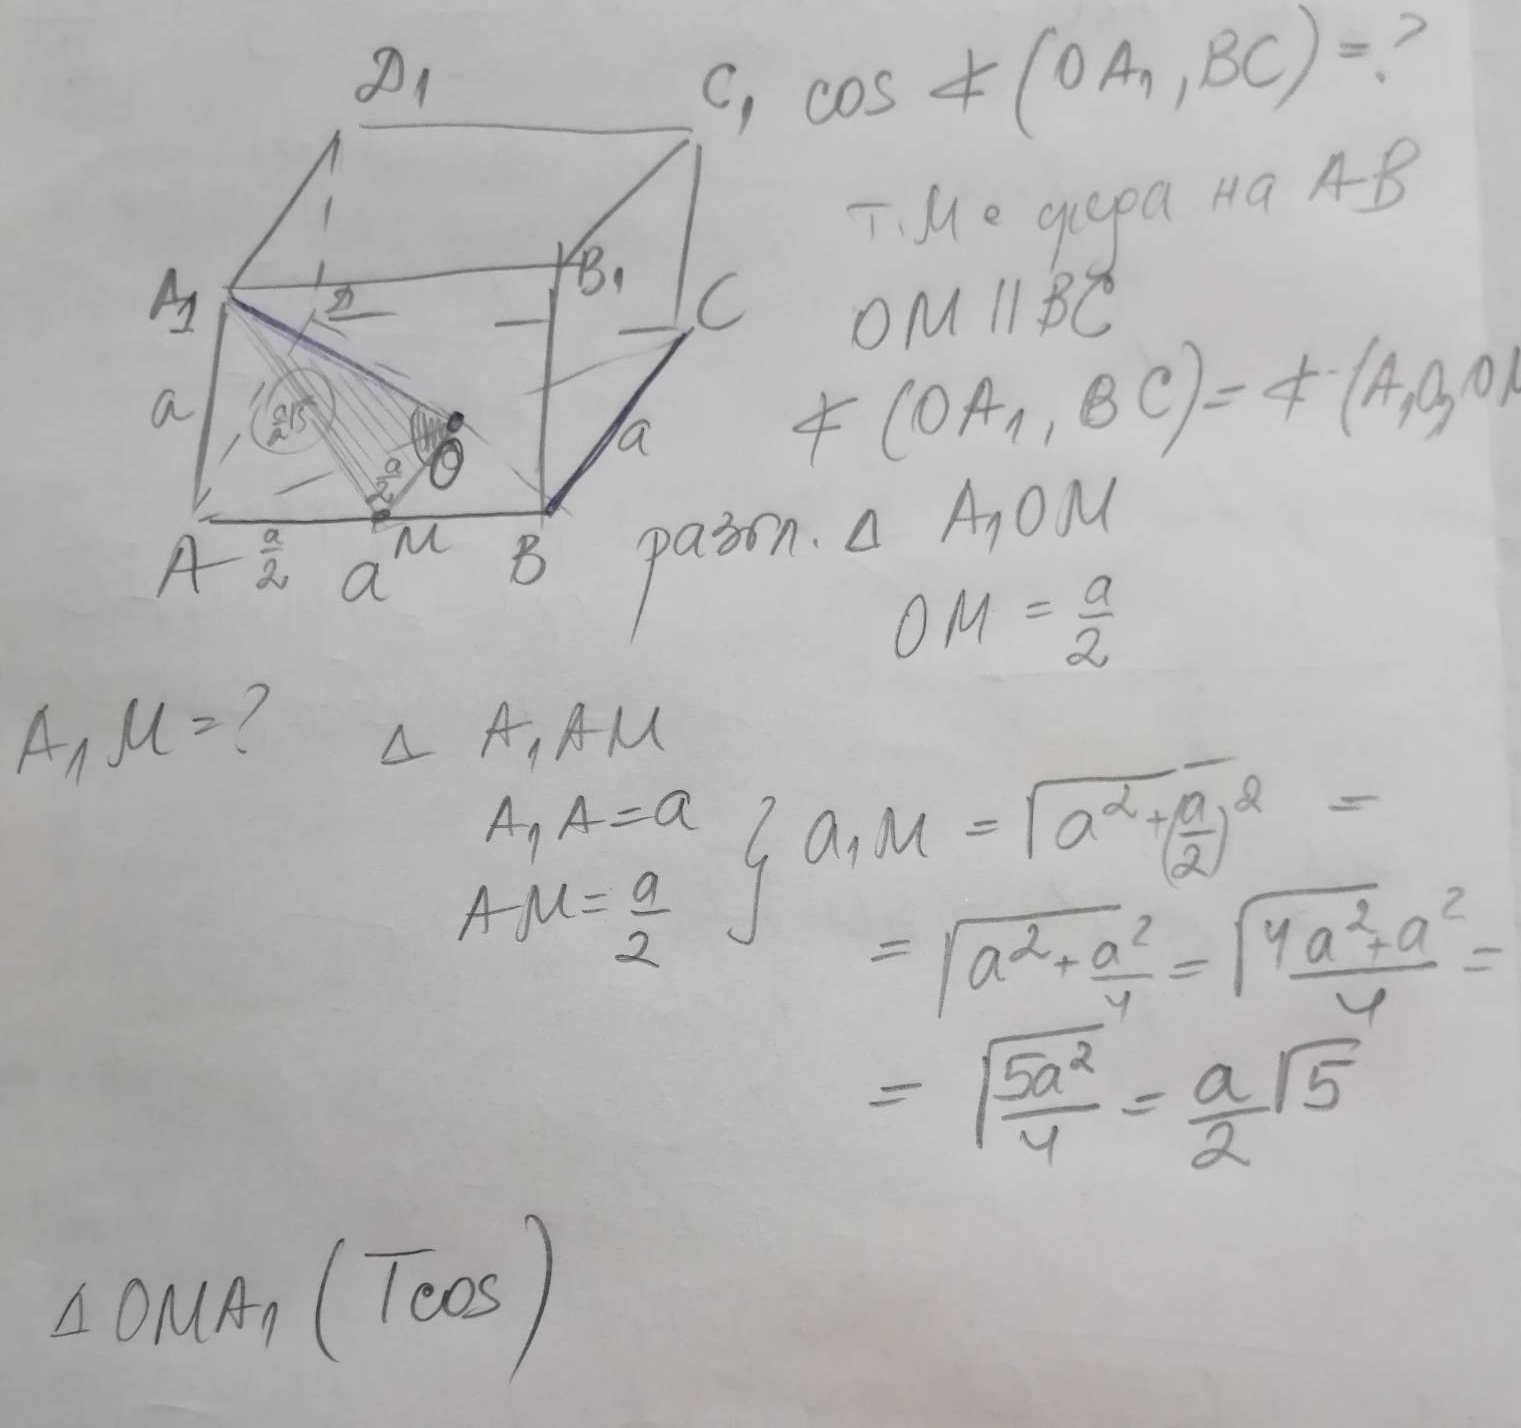 D₁
C₁
cos ∡ (OA₁, BC) = ?
т. M е среда на AB
A₁
B₁
D
C
OM || BC
a
∡ (OA₁, BC) = ∡ (A₁O, OM
a
a/2 √5
a/2
O
A
a/2
a
M
B
разгл. Δ A₁OM
OM = a/2
A₁M = ?
Δ A₁AM
A₁A = a
AM = a/2
} a₁M = √a² + (a/2)² =
= √a² + a²/4 = √4a² + a²/4 =
= √5a²/4 = a/2 √5
Δ OMA₁ (Tcos)